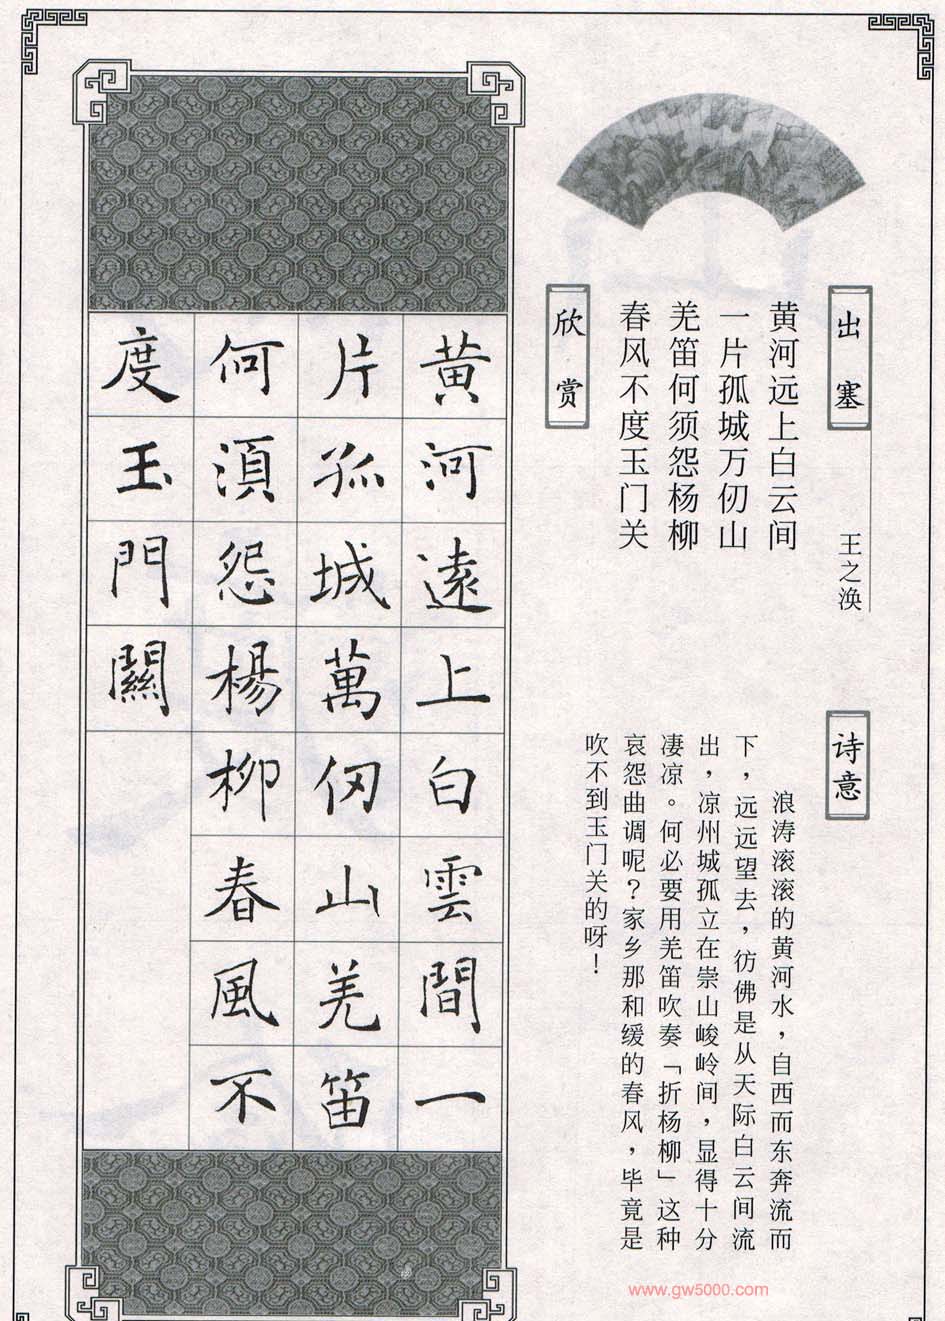 出塞
王之涣
黄河远上白云间
一片孤城万仞山
羌笛何须怨杨柳
春风不度玉门关
欣赏
诗意
浪涛滚滚的黄河水，自西而东奔流而
下，远远望去，彷佛是从天际白云间流
出，凉州城孤立在崇山峻岭间，显得十分
凄凉。何必要用羌笛吹奏「折杨柳」这种
哀怨曲调呢？家乡那和缓的春风，毕竟是
吹不到玉门关的呀！
黄河遠上白雲間一
片孤城萬仞山羌笛
何須怨楊柳春風不
度玉門關
www.gw5000.com